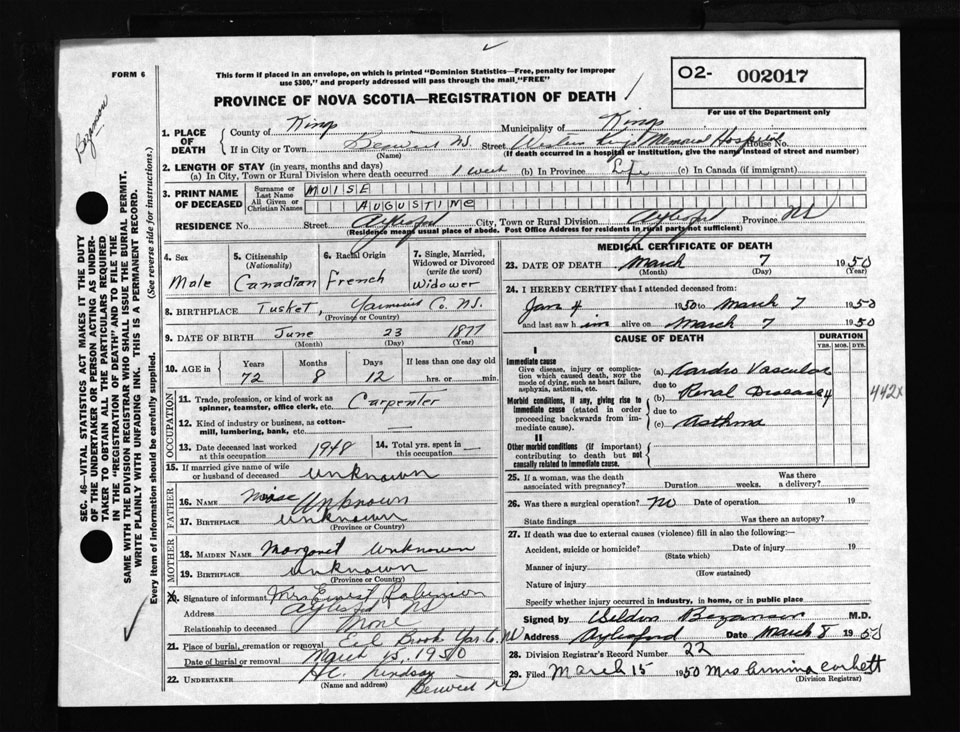 FORM 6
This form if placed in an envelope, on which is printed "Dominion Statistics—Free, penalty for improper
use $300," and properly addressed will pass through the mail "FREE"
O2- 002017
For use of the Department only
PROVINCE OF NOVA SCOTIA—REGISTRATION OF DEATH
Bezanson
1. PLACE OF DEATH
County of Kings Municipality of Kings
If in City or Town Berwick NS. Street Western Kings Memorial Hospital House No.
(Name) (If death occurred in a hospital or institution, give the name instead of street and number)
2. LENGTH OF STAY (in years, months and days)
(a) In City, Town or Rural Division where death occurred 1 week (b) In Province Life (c) In Canada (if immigrant)
3. PRINT NAME OF DECEASED
Surname or Last Name MUISE
All Given or Christian Names AUGUSTINE
RESIDENCE No. Street Aylesford City, Town or Rural Division Aylesford Province NS
(Residence means usual place of abode. Post Office Address for residents in rural parts not sufficient)
4. Sex
Male
5. Citizenship
(Nationality)
Canadian
6. Racial Origin
French
7. Single, Married,
Widowed or Divorced
(write the word)
Widower
8. BIRTHPLACE Tusket, Yarmouth Co. NS.
(Province or Country)
9. DATE OF BIRTH June 23 1877
(Month) (Day) (Year)
10. AGE in
Years Months Days If less than one day old
72 8 12 hrs. or min.
OCCUPATION
11. Trade, profession, or kind of work as
spinner, teamster, office clerk, etc. Carpenter
12. Kind of industry or business, as cotton-
mill, lumbering, bank, etc. —
13. Date deceased last worked
at this occupation 1948
14. Total yrs. spent in
this occupation —
15. If married give name of wife
or husband of deceased unknown
FATHER
16. NAME Muise Unknown
17. BIRTHPLACE unknown
(Province or Country)
MOTHER
18. MAIDEN NAME Margaret unknown
19. BIRTHPLACE unknown
(Province or Country)
20. Signature of informant Mrs Ernest Robinson
Address Aylesford NS
Relationship to deceased None
21. Place of burial, cremation or removal Eel Brook Yar. Co. NS
Date of burial or removal March 15, 1950
22. UNDERTAKER H.C. Lindsay
(Name and address) Berwick NS
MEDICAL CERTIFICATE OF DEATH
23. DATE OF DEATH March 7 1950
(Month) (Day) (Year)
24. I HEREBY CERTIFY that I attended deceased from:
Jan 4 1950 to March 7 1950
and last saw him alive on March 7 1950
CAUSE OF DEATH
DURATION
YRS. MOS. DYS.
I
Immediate cause
Give disease, injury or complica-
tion which caused death, not the
mode of dying, such as heart failure,
asphyxia, asthenia, etc.
(a) Cardio Vascular
due to
Morbid conditions, if any, giving rise to
immediate cause (stated in order
proceeding backwards from im-
mediate cause).
(b) Renal Disease 4
442x
due to
(c) Asthma
II
Other morbid conditions (if important)
contributing to death but not
causally related to immediate cause.
25. If a woman, was the death
associated with pregnancy? Duration weeks. Was there
a delivery?
26. Was there a surgical operation? No Date of operation 19
State findings Was there an autopsy?
27. If death was due to external causes (violence) fill in also the following:—
Accident, suicide or homicide? Date of injury 19
(State which)
Manner of injury
(How sustained)
Nature of injury
Specify whether injury occurred in industry, in home, or in public place
Signed by Weldon Bezanson M.D.
Address Aylesford Date March 8 1950
28. Division Registrar's Record Number 22
29. Filed March 15 1950 Mrs Ermina Corbett
(Division Registrar)
SEC. 46—VITAL STATISTICS ACT MAKES IT THE DUTY
OF THE UNDERTAKER OR PERSON ACTING AS UNDER-
TAKER TO OBTAIN ALL THE PARTICULARS REQUIRED
IN THE "REGISTRATION OF DEATH" AND TO FILE THE
SAME WITH THE DIVISION REGISTRAR WHO SHALL ISSUE THE BURIAL PERMIT.
WRITE PLAINLY WITH UNFADING INK. THIS IS A PERMANENT RECORD.
Every item of information should be carefully supplied. (See reverse side for instructions.)